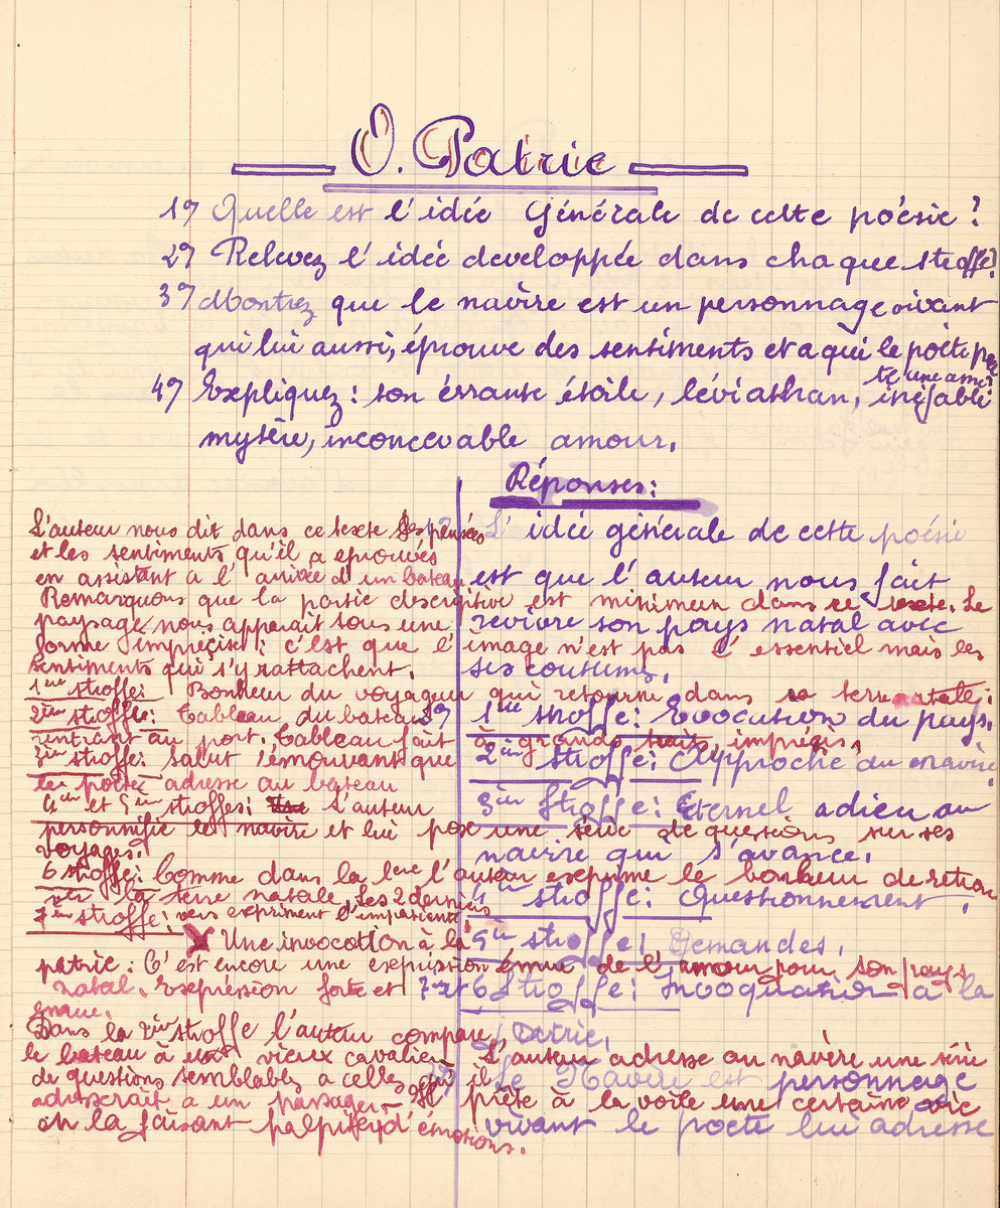 O. Patrie
1º) Quelle est l'idée Générale de cette poésie?
2º) Relevez l'idée developpée dans chaque stroffe?
3º) Montrez que le navire est un personnage vivant
qui lui aussi, éprouve des sentiments et a qui le poète prê
te une ame?
4º) Expliquez: son érrante étoile, léviathan, inéfable
mystère, inconcevable amour.
Réponses:
L'auteur nous dit dans ce texte les pensées
et les sentiments qu'il a eprouvés
en assistant a l'arrivée d'un bateau
Remarquons que la partie descriptive est minimum dans ce texte. Le
paysage nous apparait sous une
forme imprécise: c'est que l'image n'est pas l'essentiel mais les
sentiments qui s'y rattachent.
1ère stroffe: Bonheur du voyageur qui retourne dans sa terre natale:
2ème stroffe: Tableau du bateau
rentrant au port. Tableau fait à grands traits, imprécis.
3ème stroffe: Salut émouvant que
le poète adresse au bateau
4ème et 5ème stroffes: L'auteur
personnifie le navire et lui pose une série de questions sur ses
voyages.
6 stroffe: Comme dans la 1ere l'auteur exprime le bonheur de retour
vers la terre natale, Les 2 derniers
vers expriment l'impatience
7ème stroffe: Une invocation à la
patrie: C'est encore une expression émue de l'amour pour son pays
natal. Expression forte et
émue.
Dans la 2ème stroffe l'auteur compare
le bateau à un vieux cavalier
L'auteur adresse au navire une série
de questions semblables a celles qu'il
adresserait a un passager
prête à la voile une certaine vie
en la faisant palpiter d'émotions.
L'idée générale de cette poésie
est que l'auteur nous fait
revivre son pays natal avec
ses coutumes.
2º) 1ère stroffe: Evocation du pays.
2ème stroffe: Approche du navire
3ème stroffe: Eternel adieu au
navire qui s'avance.
4ème stroffe: Questionnement.
5ème stroffe: Demandes.
7 et 6 stroffe: Invoquation à la
patrie.
Le Navire est personnage
vivant le poète lui adresse